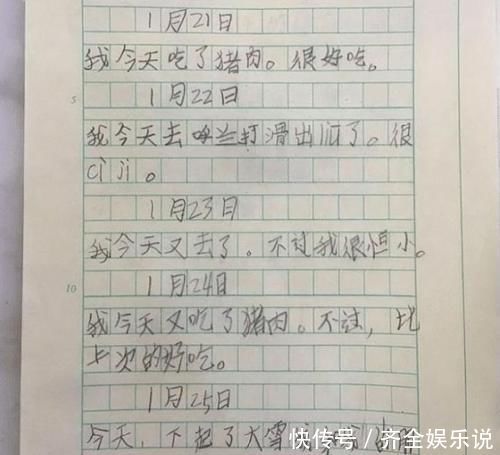 1月21日
我今天吃了猪肉。很好吃。
5
1月22日
我今天去呼兰打滑出溜了。很
cì ji。
1月23日
我今天又去了。不过我很恒小。
10
1月24日
我今天又吃了猪肉。不过，比
上次的好吃。
1月25日
今天，下起了大雪
快传号／齐全娱乐说